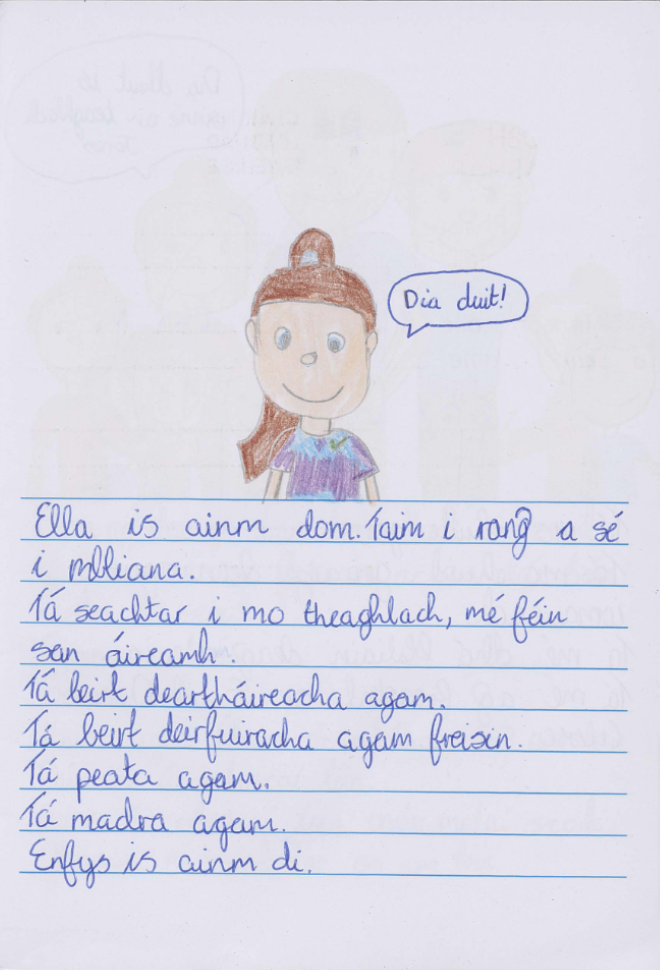 Dia duit!
Ella is ainm dom. Táim i rang a sé
i mbliana.
Tá seachtar i mo theaghlach, mé féin
san áireamh.
Tá beirt deartháireacha agam.
Tá beirt deirfiuracha agam freisin.
Tá peata agam.
Tá madra agam.
Enfys is ainm di.